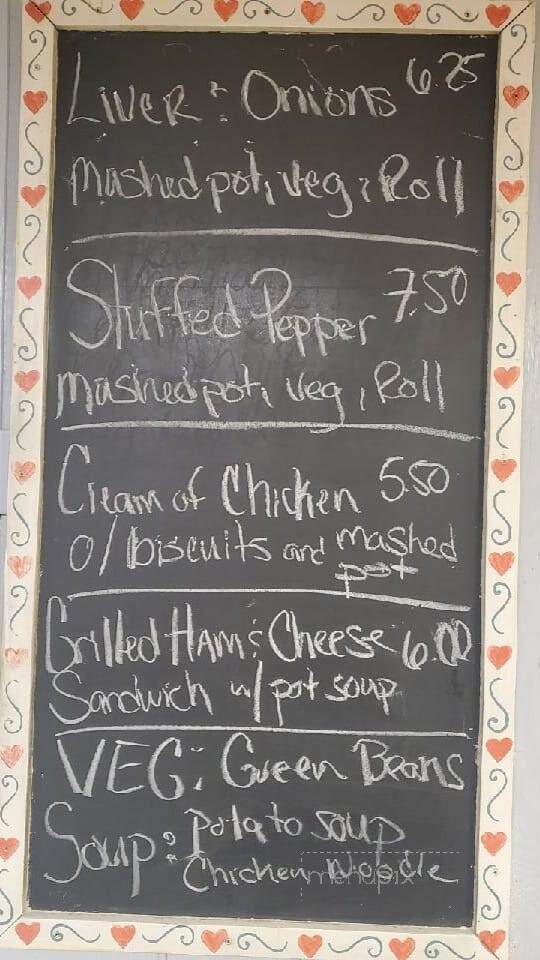 Liver & Onions 6.25
Mashed pot, veg, Roll
Stuffed Pepper 7.50
Mashed pot, veg, Roll
Cream of Chicken 5.50
o/biscuits and mashed
pot
Grilled Ham & Cheese 6.00
Sandwich w/pot soup
VEG: Green Beans
Soup: Potato soup
Chicken Noodle
menupix